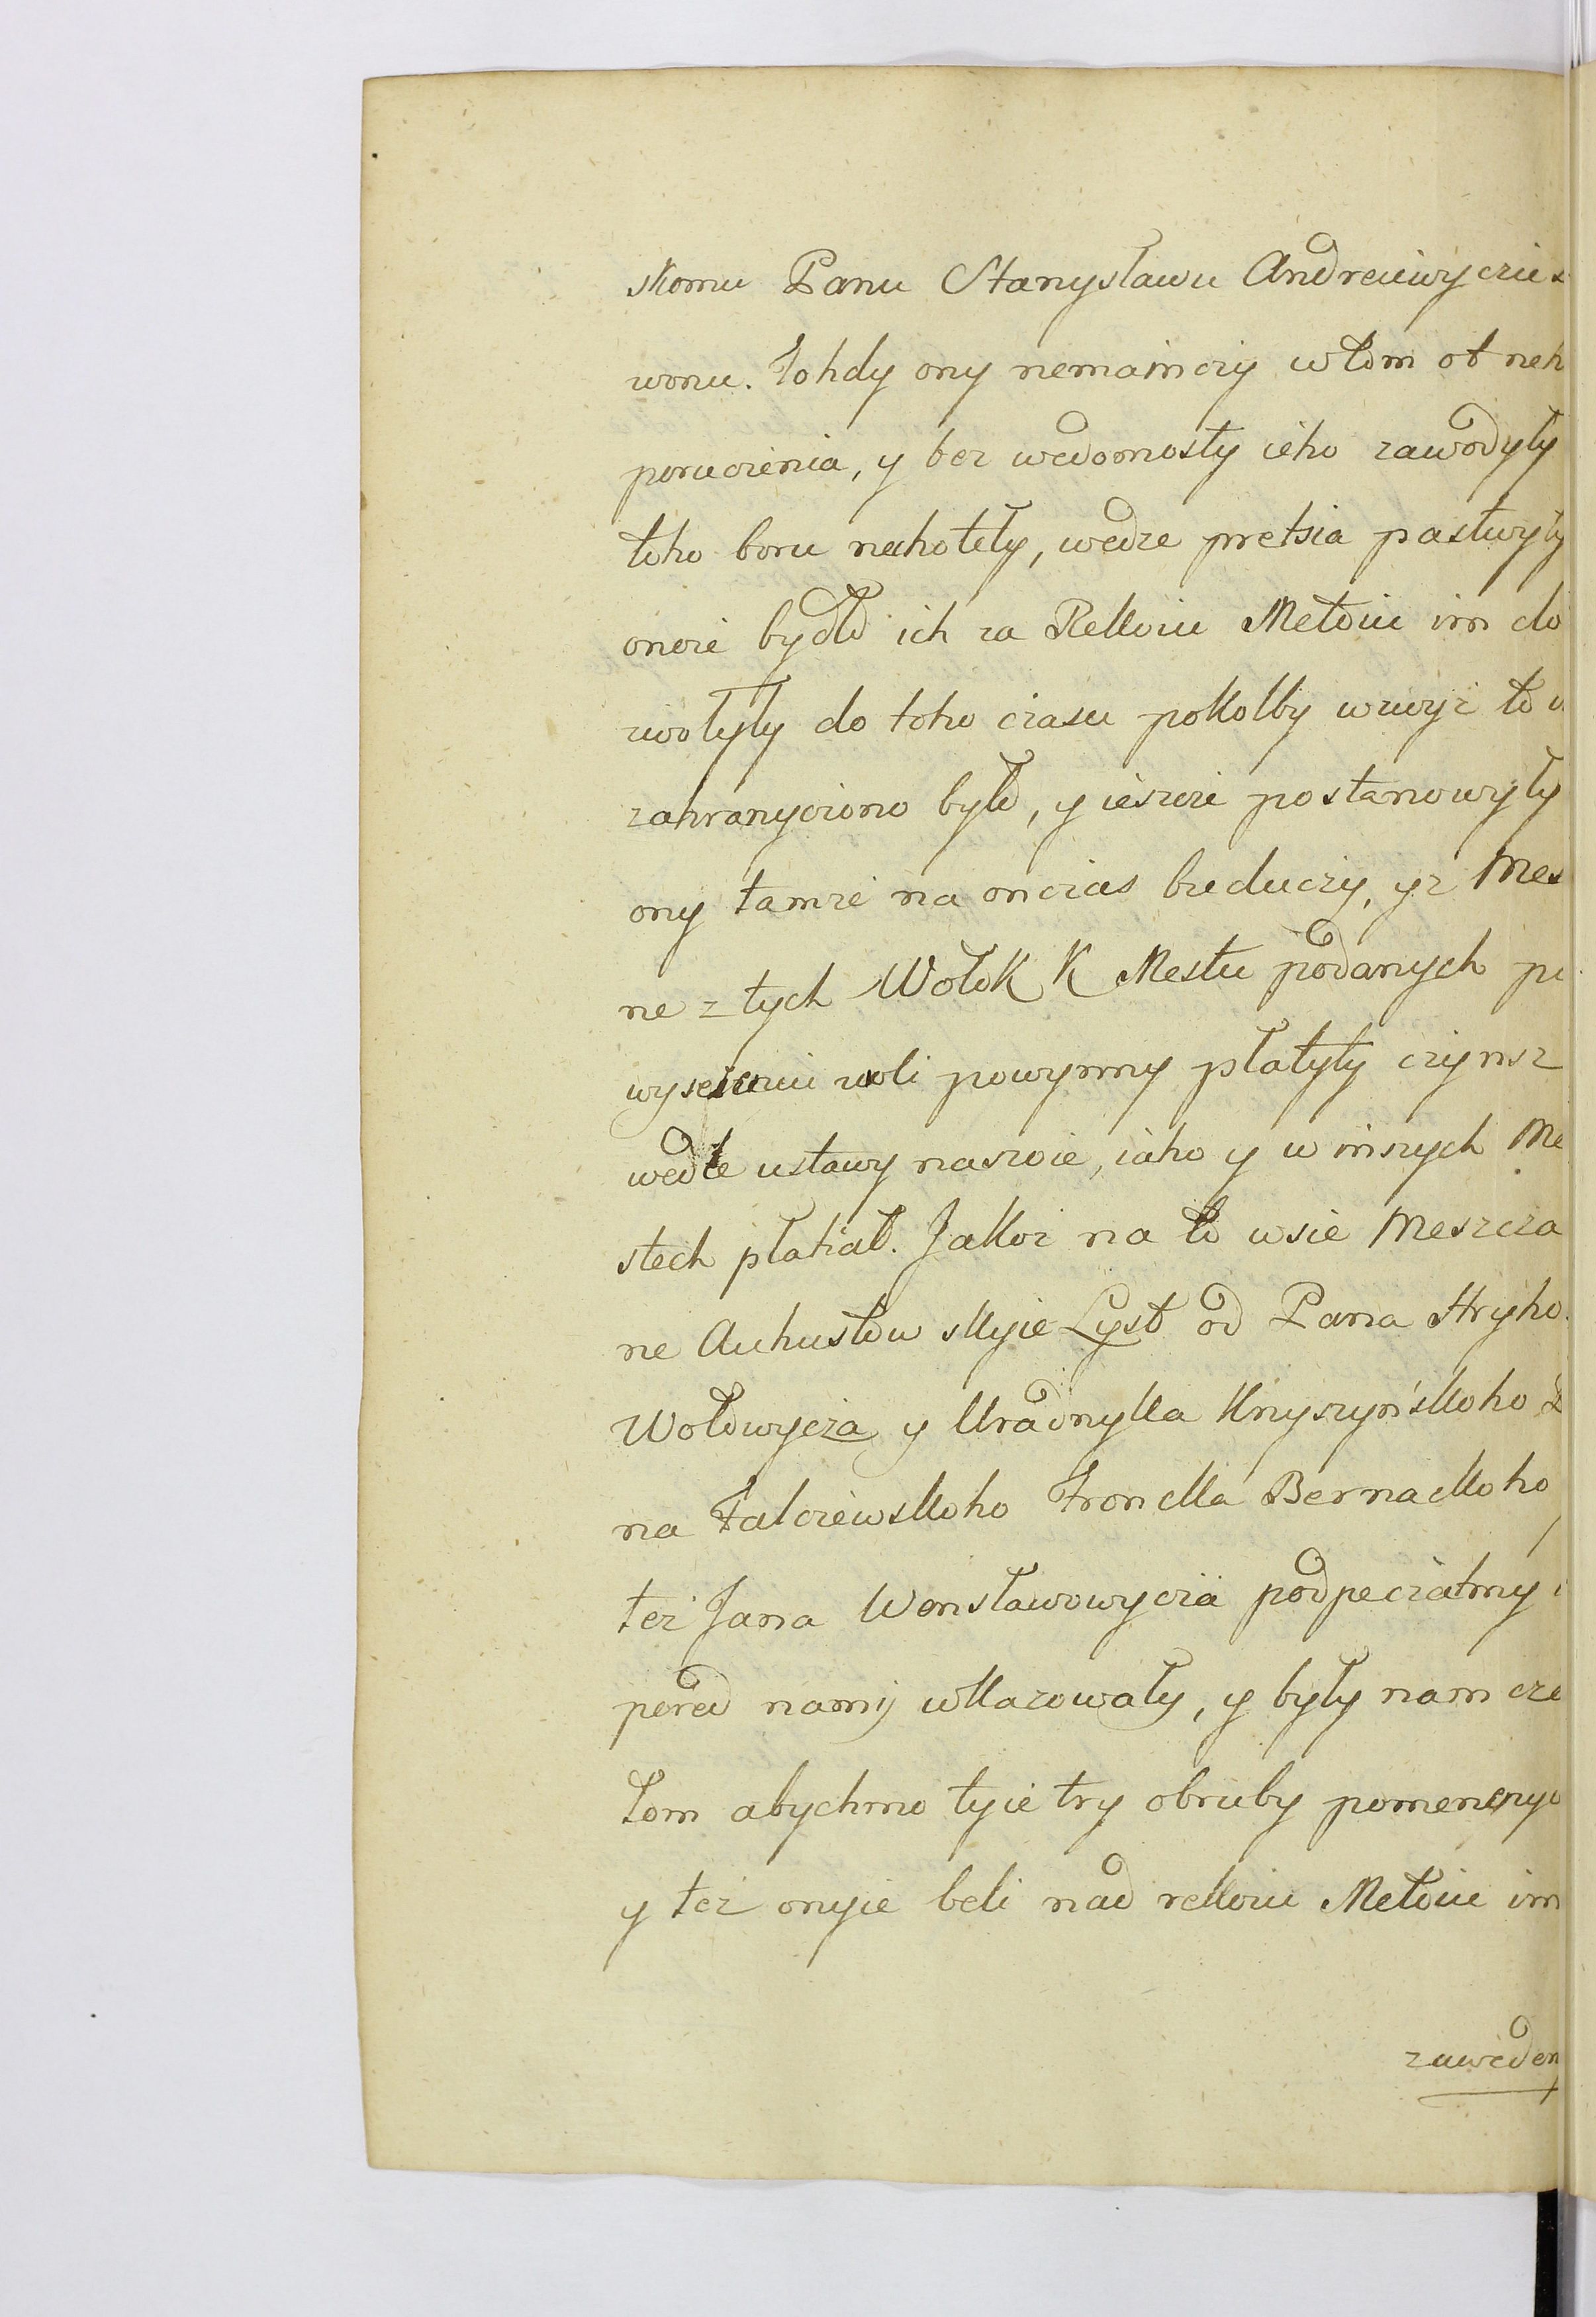 skomu Panu Stanysławu Andreiewyczu
wonu. Tohdy ony nemaiuczy w tom ot neh
poruczenia, y bez wedomosty ieho zawodyty
toho boru nechotely, wedze pretsia pastwyty
oneże bydło ich za Rekoiu Metoiu im do
zwolyly do toho czasu pokolby wzwyż to
zahranyczono było, y ieszcze postanowyły
ony tamże na onczas buduczy, yż Mes
ne z tych Wołok K Mestu podanych po
wysedeniu woli powynny płatyty czynsz
wedle ustawy naszoie, iako y w inszych Me
stech płatiat. Jakoż na to wsie Meszcza
ne Auhustowskyie Lyst od Pana Hryho
Wołowycza y Uradnyka Knyszynskoho
na Falczewskoho Froncka Bernackoho
też Jana Wonsławowycza podpeczatmy
pered namy wkazowały, y były nam cze
łom abychmo tyie try obruby pomenenyo
y też onyie beli nad rekoiu Metoiu im
zaweden